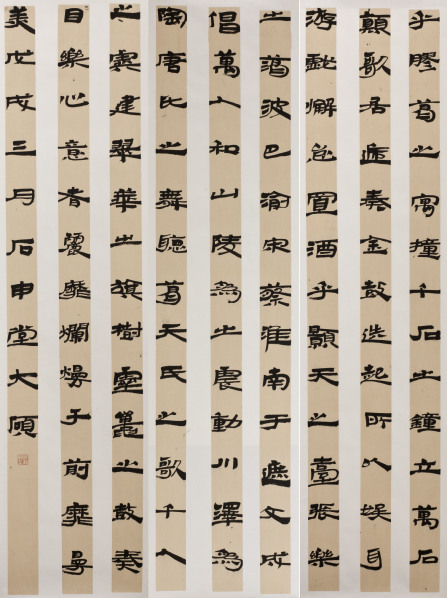 乎膠葛之寓撞千石之鐘立萬石
顛歌居遞奏金鼓迭起所以娛耳
游戲懈怠置酒乎顥天之臺張樂
之蕩波巴渝宋蔡淮南于遮文成
倡萬人和山陵為之震動川澤為
陶唐氏之舞聽葛天氏之歌千人
之虡建翠華之旗樹靈鼉之鼓奏
目樂心意者麗靡爛熳于前靡曼
美戊戌三月石申堂大碩